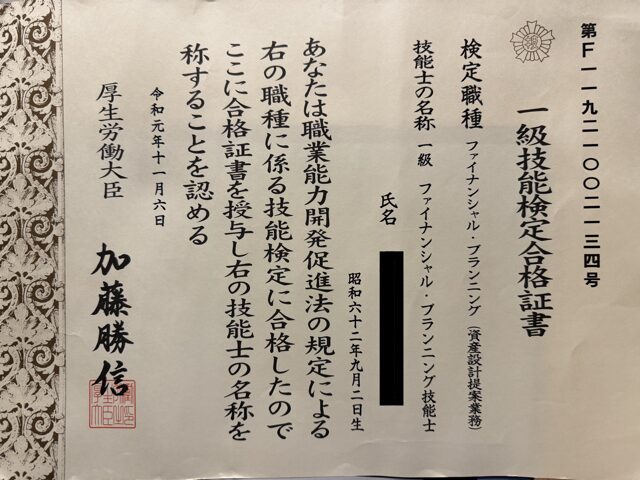 第F一一九二一〇〇二一三四号
一級技能検定合格証書
検定職種 ファイナンシャル・プランニング(資産設計提案業務)
技能士の名称 一級 ファイナンシャル・プランニング技能士
氏名
昭和六十二年九月二日生
あなたは職業能力開発促進法の規定による
右の職種に係る技能検定に合格したので
ここに合格証書を授与し右の技能士の名称を
称することを認める
令和元年十一月六日
厚生労働大臣 加藤勝信